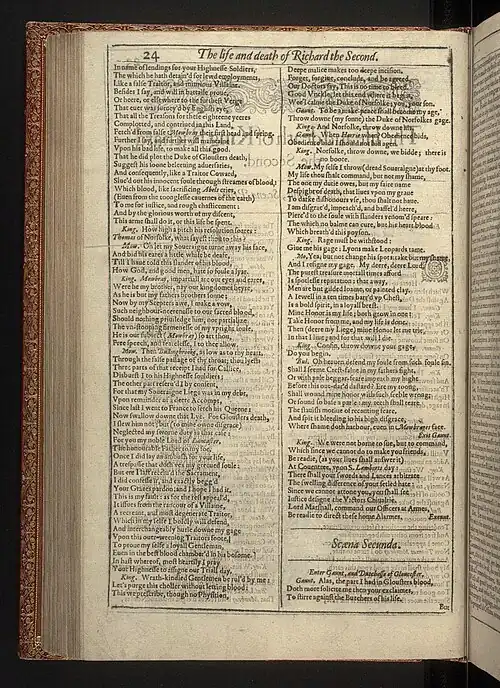 24 The life and death of Richard the Second.
In name of lendings for your Highnesse Soldiers,
The which he hath detain'd for lewd employments,
Like a false Traitor, and iniurious Villaine.
Besides I say, and will in battaile proue,
Or heere, or elsewhere to the furthest Verge
That euer was suruey'd by English eye,
That all the Treasons for these eighteene yeeres
Complotted, and contriued in this Land,
Fetch'd from false Mowbray their first head and spring.
Further I say, and further will maintaine
Vpon his bad life, to make all this good.
That he did plot the Duke of Glousters death,
Suggest his soone beleeuing aduersaries,
And consequently, like a Traitor Coward,
Sluc'd out his innocent soule through streames of blood:
Which blood, like sacrificing Abels cries,
(Euen from the toonglesse cauernes of the earth)
To me for iustice, and rough chasticement:
And by the glorious worth of my discent,
This arme shall do it, or this life be spent.
King. How high a pitch his resolution soares:
Thomas of Norfolke, what sayest thou to this?
Mow. Oh let my Soueraigne turne away his face,
And bid his eares a little while be deafe,
Till I haue told this slander of his blood,
How God, and good men, hate so foule a lyar.
King. Mowbray, impartiall are our eyes and eares,
Were he my brother, nay our kingdomes heyre,
As he is but my fathers brothers sonne;
Now by my Scepters awe, I make a vow,
Such neighbour-neerenesse to our sacred blood,
Should nothing priuiledge him, nor partialize
The vn-stooping firmenesse of my vpright soule.
He is our subiect (Mowbray) so art thou,
Free speech, and fearelesse, I to thee allow.
Mow. Then Bullingbrooke, as low as to thy heart,
Through the false passage of thy throat; thou lyest:
Three parts of that receipt I had for Callice,
Disburst I to his Highnesse souldiers;
The other part reseru'd I by consent,
For that my Soueraigne Liege was in my debt,
Vpon remainder of a deere Accompt,
Since last I went to France to fetch his Queene:
Now swallow downe that Lye. For Glousters death,
I slew him not; but (to mine owne disgrace)
Neglected my sworne duty in that case:
For you my noble Lord of Lancaster,
The honourable Father to my foe,
Once I did lay an ambush for your life,
A trespasse that doth vex my greeued soule:
But ere I last receiu'd the Sacrament,
I did confesse it, and exactly begg'd
Your Graces pardon, and I hope I had it.
This is my fault: as for the rest appeal'd,
It issues from the rancour of a Villaine,
A recreant, and most degenerate Traitor,
Which in my selfe I boldly will defend,
And interchangeably hurle downe my gage
Vpon this ouer-weening Traitors foote,
To proue my selfe a loyall Gentleman,
Euen in the best blood chamber'd in his bosome.
In hast whereof, most heartily I pray
Your Highnesse to assigne our Triall day.
King. Wrath-kindled Gentlemen be rul'd by me:
Let's purge this choller without letting blood:
This we prescribe, though no Physition,
Deepe malice makes too deepe incision.
Forget, forgiue, conclude, and be agreed,
Our Doctors say, This is no time to bleed.
Good Vnckle, let this end where it begun,
Wee'l calme the Duke of Norfolke; you, your son.
Gaunt. To be a make-peace shall become my age,
Throw downe (my sonne) the Duke of Norfolkes gage.
King. And Norfolke, throw downe his.
Gaunt. When Harrie when? Obedience bids,
Obedience bids I should not bid agen.
King. Norfolke, throw downe, we bidde; there is
no boote.
Mow. My selfe I throw (dread Soueraigne) at thy foot.
My life thou shalt command, but not my shame,
The one my dutie owes, but my faire name
Despight of death, that liues vpon my graue
To darke dishonours vse, thou shalt not haue.
I am disgrac'd, impeach'd, and baffel'd heere,
Pierc'd to the soule with slanders venom'd speare:
The which no balme can cure, but his heart blood
Which breath'd this poyson.
King. Rage must be withstood:
Giue me his gage: Lyons make Leopards tame.
Mo. Yea, but not change his spots: take but my shame,
And I resigne my gage. My deere, deere Lord,
The purest treasure mortall times afford
Is spotlesse reputation: that away,
Men are but gilded loame, or painted clay.
A Iewell in a ten times barr'd vp Chest,
Is a bold spirit, in a loyall brest.
Mine Honor is my life; both grow in one:
Take Honor from me, and my life is done.
Then (deere my Liege) mine Honor let me trie,
In that I liue; and for that will I die.
King. Coosin, throw downe your gage,
Do you begin.
Bul. Oh heauen defend my soule from such foule sin.
Shall I seeme Crest-falne in my fathers sight,
Or with pale beggar-feare impeach my hight
Before this out-dar'd dastard? Ere my toong,
Shall wound mine honor with such feeble wrong;
Or sound so base a parle: my teeth shall teare
The slauish motiue of recanting feare,
And spit it bleeding in his high disgrace,
Where shame doth harbour, euen in Mowbrayes face.
Exit Gaunt.
King. We were not borne to sue, but to command,
Which since we cannot do to make you friends,
Be readie, (as your liues shall answer it)
At Couentree, vpon S. Lamberts day:
There shall your swords and Lances arbitrate
The swelling difference of your setled hate:
Since we cannot attone you, you shall see
Iustice designe the Victors Chiualrie.
Lord Marshall, command our Officers at Armes,
Be readie to direct these home Alarmes. Exeunt.
Scæna Secunda.
Enter Gaunt, and Dutchesse of Gloucester.
Gaunt. Alas, the part I had in Glousters blood,
Doth more solicite me then your exclaimes,
To stirre against the Butchers of his life.
But